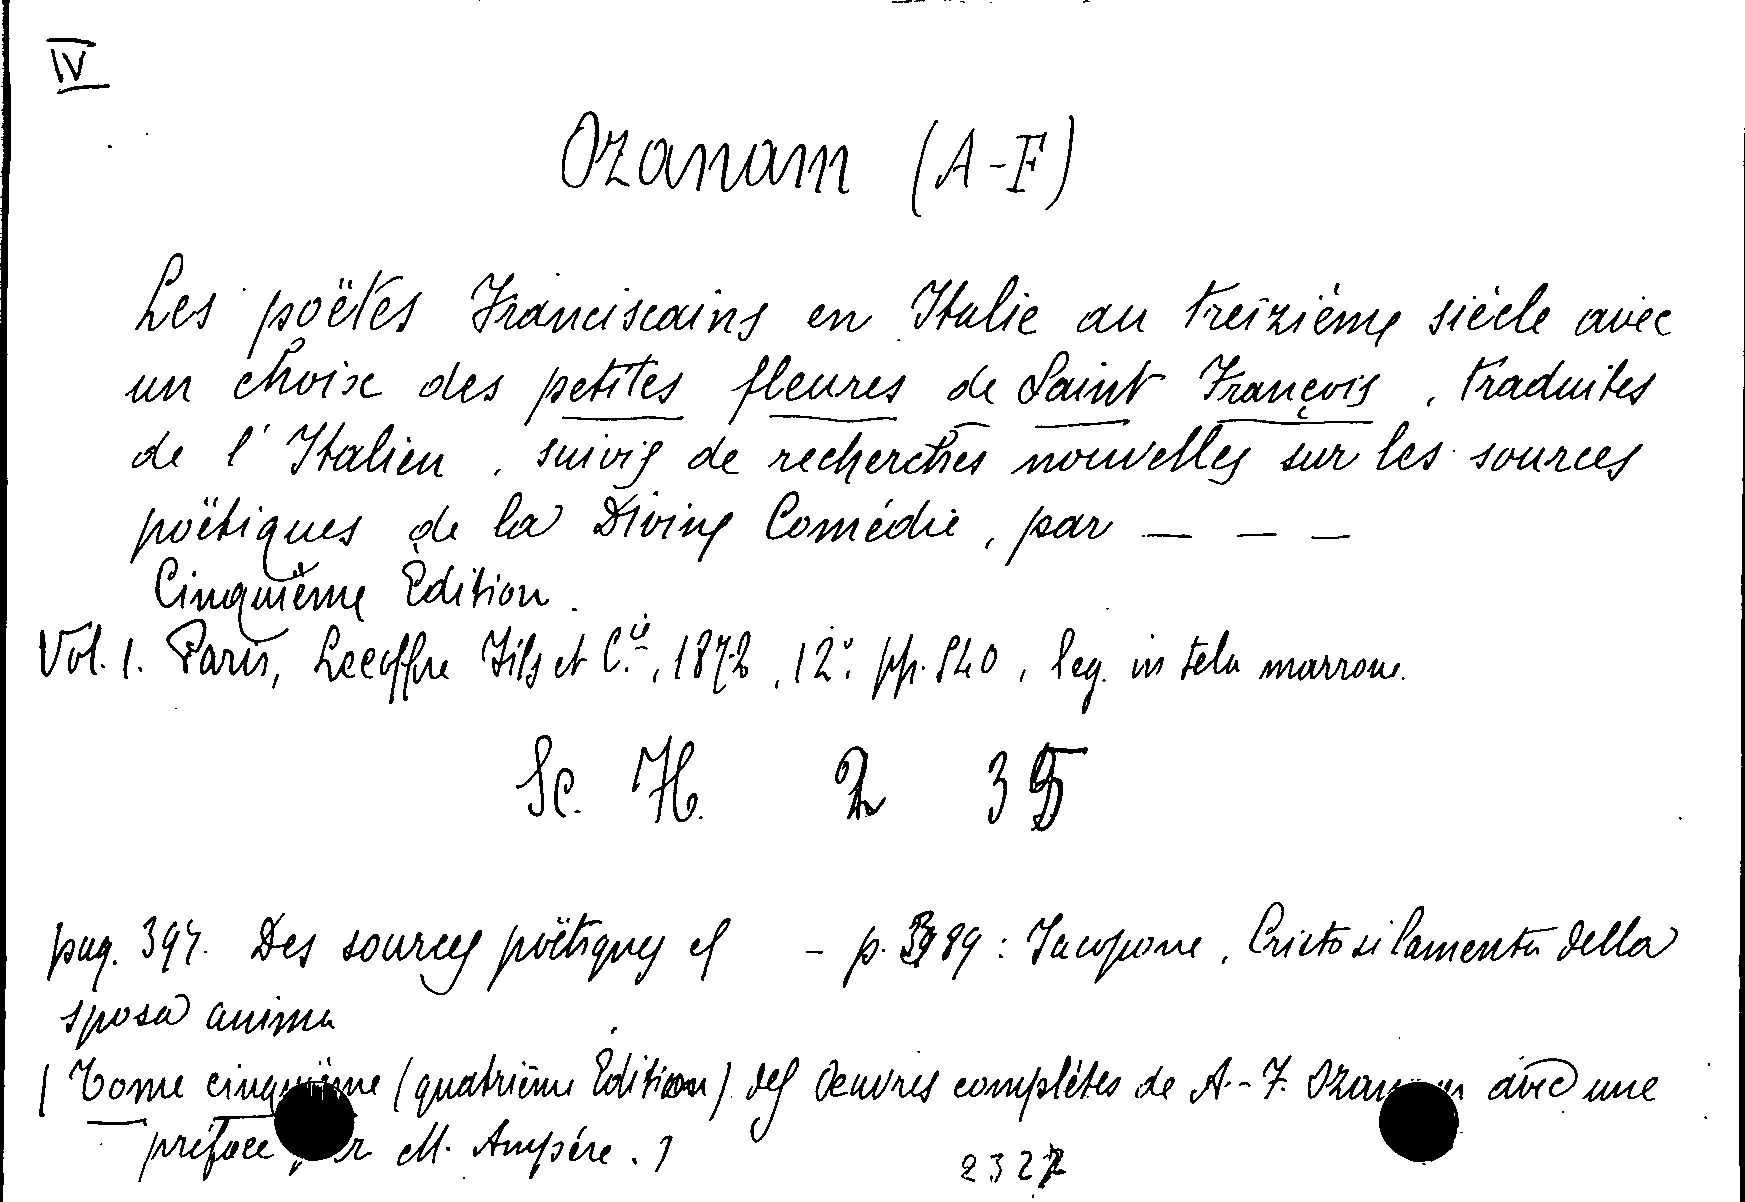 IV
Ozanam (A-F)
Les poëtes Franciscains en Italie au treizième siècle avec
un choix des petites fleures de Saint François, traduites
de l'Italien, suivis de recherches nouvelles sur les sources
poëtiques de la Divine Comédie, par — — —
Cinquième Édition.
Vol. 1. Paris, Lecoffre Fils et C.ie, 1872, 12° pp. 540, leg. in tela marrone.
Sc. H. 2 35
pag. 397. Des sources poëtiques - p. 389: Jacopone, Cristo si lamenta della
sposa anima
(Tome cinquième (quatrième Édition) des Œuvres complètes de A.-F. Ozanam avec une
préface par M. Ampére.)
2327